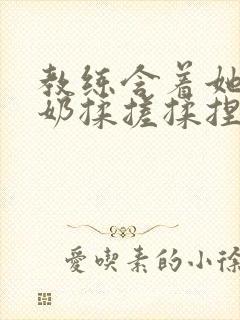 教练含着她
奶揉搓揉捏
爱喫素的小徐